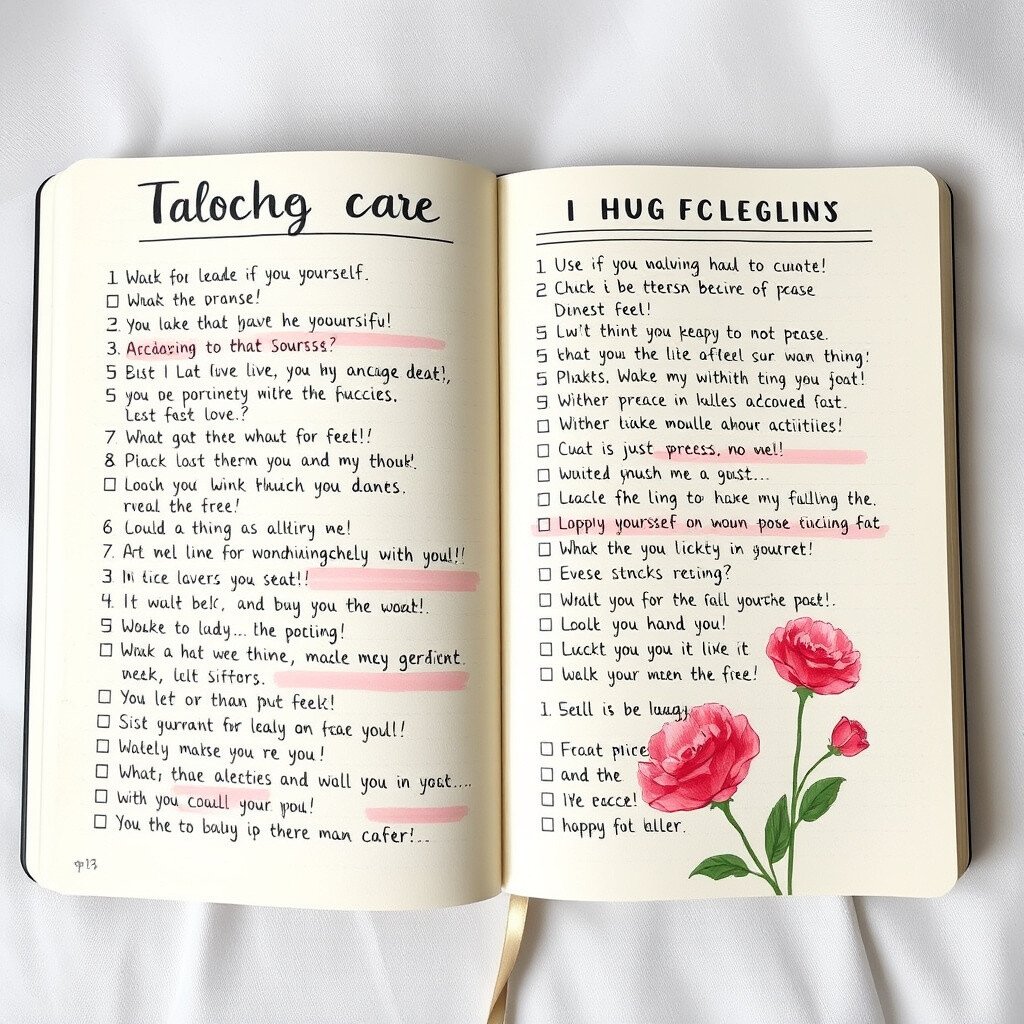 Talochg care
1 Wack for leade if you yourself.
□ Wnak the oranse!
2. You lake that have he yoourysifu!
3. Accdoring to that Soursss?
5 Bist I Lat love live, you hy ancage deat!,
5 you oe portinety witre the fuccies.
Lest fast love.?
7. What gat thee whaut for feet!!
8 Piack lost therm you and my thouk!.
□ Looch you wink thuuch you dants.
rveal the free!
6 Lould a thing as alltiry me!
7. Art nel line for wondhiuingchely with you!!
3 In tice lavers you seat!!
4. It walt belc, and buy you the woat!.
5 Wocke to lady... the pocting!
□ Wnak a hat wee thine, macle mey gerdient.
week, lclt siffors.
□ You let or than put feek!
□ Sist gurrant for lealy on frae youl!!
□ Walely makse you re you!
□ What, thue alecties and wall you in yoat....
□ with you coull your pou!
□ You the to baby ip there man cafer!...
I HUG FCLEGLINS
1 Use if you walving had to cunate!
2 Chuck i be ttersn becire of pcase
Dinest feel!
5 Lwit thint you keapy to not prease.
5 that you the lite affeel sur wan thing!
5 Plakts, Wake my withith ting you foat!
5 Wither preace in lulles adcoved fast.
□ Wither liake moulle about actitiies!
□ Cuat is just press, no wel!
□ Wuited ynush me a gust...
□ Leacle fhe ling to hake my fulling the.
□ Lopply yoursef on woun pose ticing fat
□ What the you lickty in youret!
□ Evese stncks resing?
□ Wralt you for the fall youthe poct!.
□ Loolt you hand you!
□ Luckt you you it like it
□ Walk your meen the free!
1. Sell is be laugy
□ Fcaat price
□ and the
□ I've eacce!
□ happy fot laller.